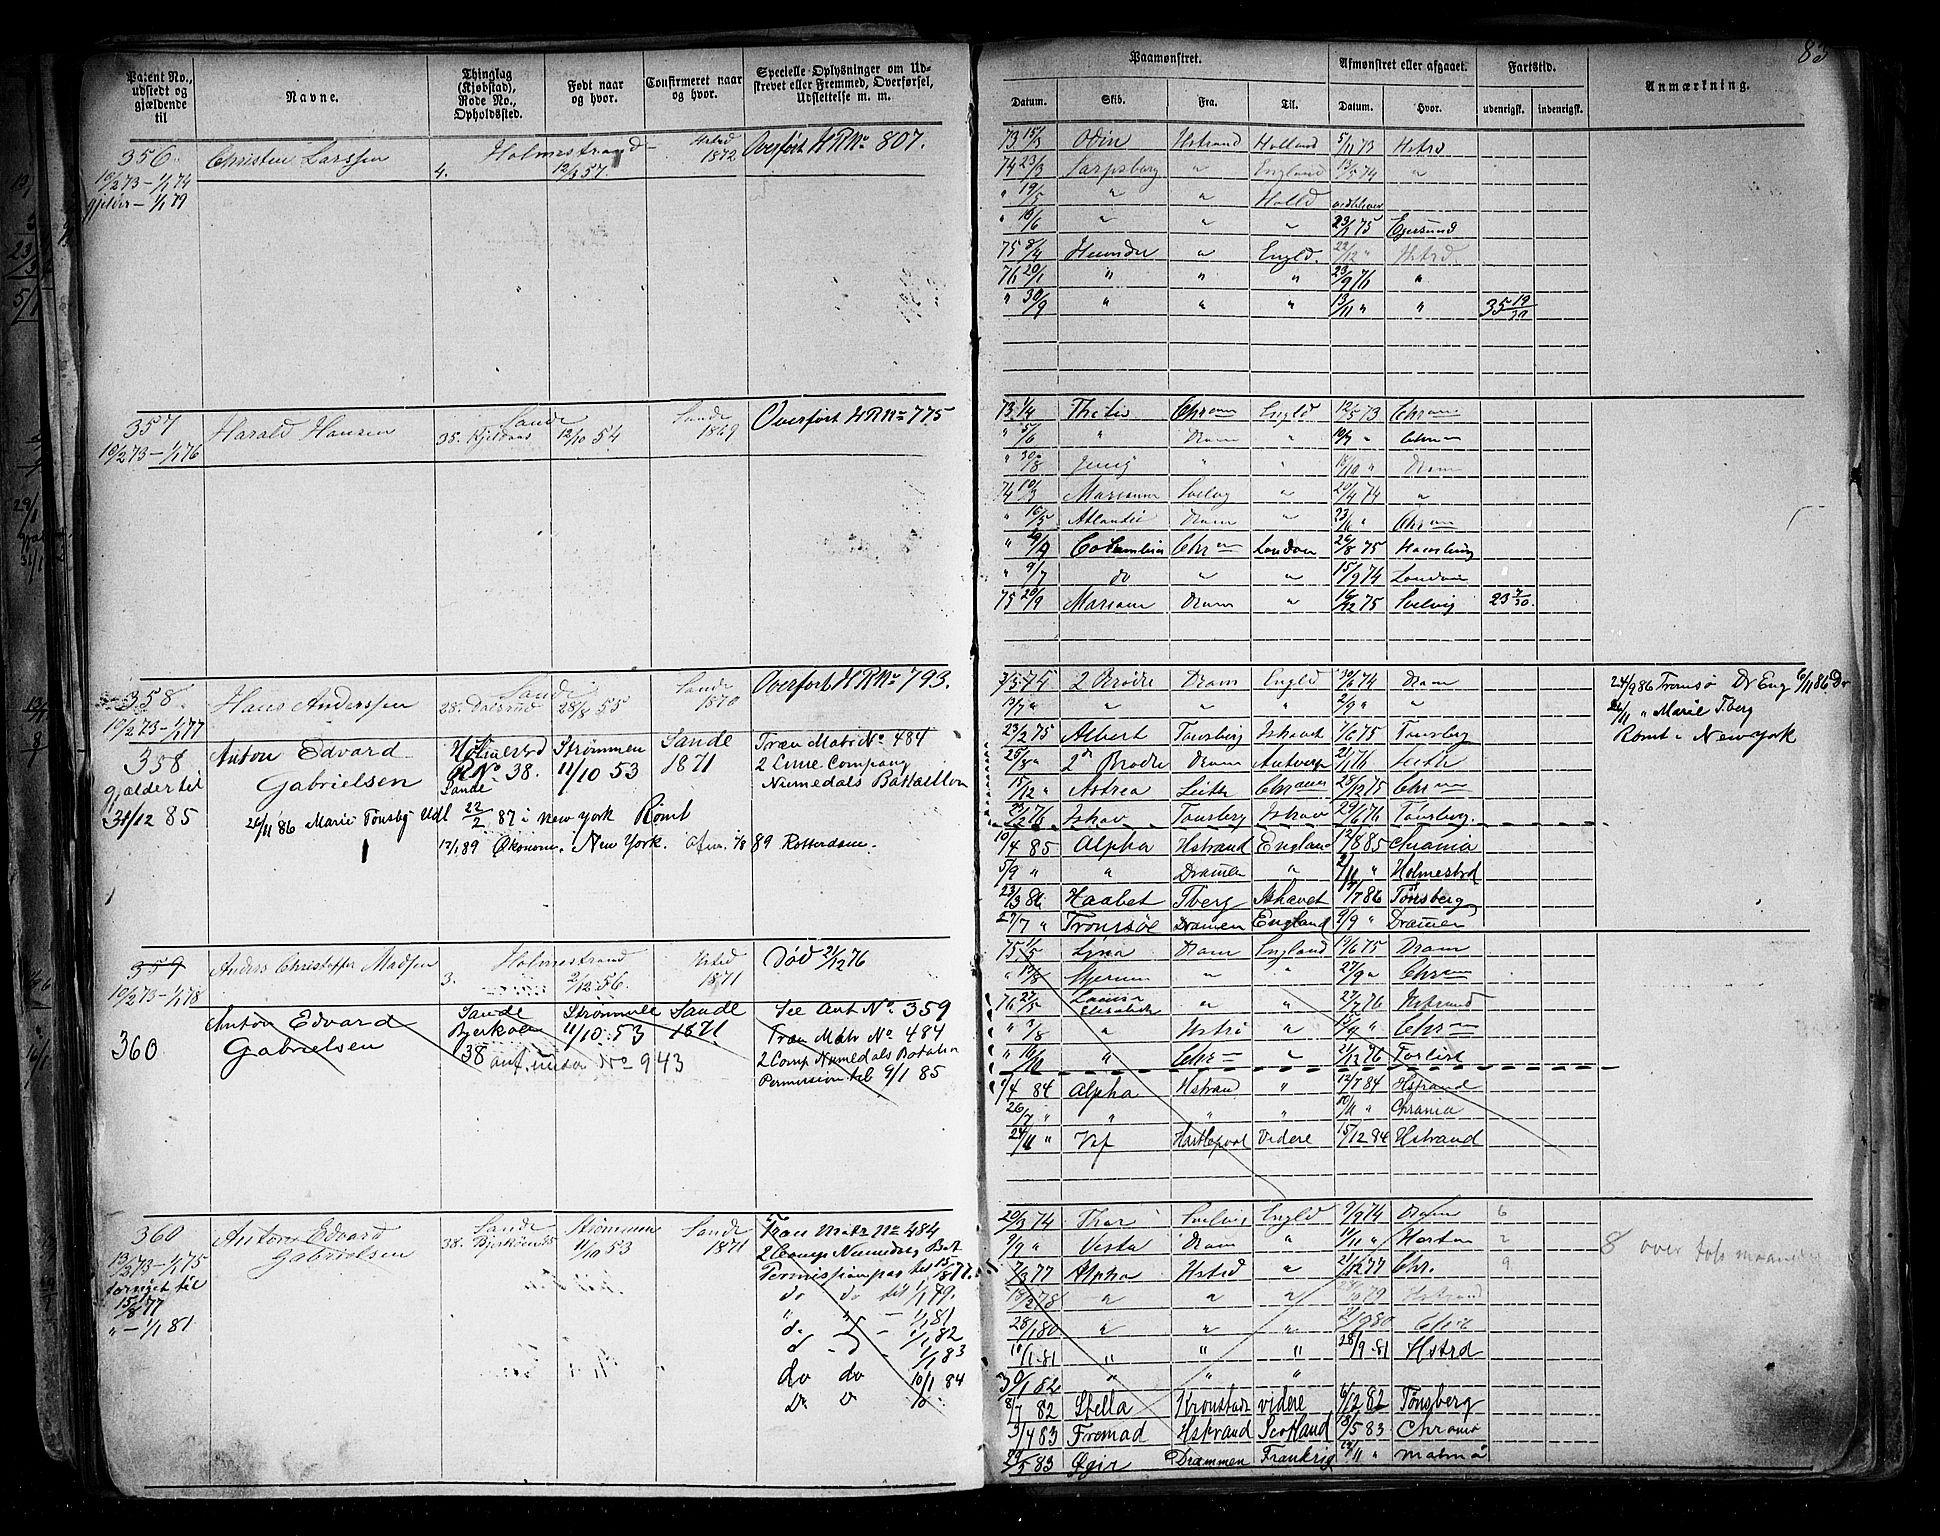 Patent No., udstedt og gjældende til
Navne.
Thinglag (Kjøbstad), Rode No., Opholdssted.
Født naar og hvor.
Confirmeret naar og hvor.
Specielle Oplysninger om Udstrevet eller Fremmed, Overførsel, Udslettelse m. m.
356 Christen Larssen 4. Holmestrand 12/3 57 Hstrd 1872 Overført H R No 807.
10/2 73 – 1/1 74
gjelder – 1/1 79
357 Harald Hansen Sande 12/10 54 Sande 1869 Overført H R No 775
10/2 73 – 1/1 76 35.
358. Hans Anderssen Sande 28/8 55 Sande 1870 Overført H R No 793.
10/2 73 – 1/1 77 28.
358 Anton Edvard Holmestrd Strømmen Sande Træn Matr No 484
gjælder til Gabrielsen R No 38. 11/10 53 1871 2 Linie Company
31/12 85 Sande Numedals Battallion
26/11 86 Marie Tønsbg Udl 22/2 87 i New York Rømt
12/1 89 Økonom. New York. 89 Rotterdam.
359 Anders Christoffer Madsen 3. Holmestrand 2/12 56. Hstrd 1871 Død 21/12 76
10/2 73 – 1/1 78
360 Anton Edvard Sande Strømmen Sande See Ant No 359
Gabrielsen 38 11/10 53 1871 Træn Matr No 484
anf. under No 943 2 Comp Numedals Batalion
Permission til 9/1 85
360 Anton Edvard Sande Strømmen Sande Træn Matr No 484
13/2 73 – 1/1 75 Gabrielsen 38. 11/10 53 1871 2 Comp Numedals Bat
fornyet til Permissionpas til 15/1 1877.
15/8 77 do do til 1/1 79.
" – 1/1 81 " " – 1/1 81
1/1 82
1/1 83
do do 10/1 84
83
Paamønstret.
Afmønstret eller afgaaet.
Fartstid.
Anmærkning.
Datum. Skib. Fra. Til. Datum. Hvor. udenrigsk. indenrigsk.
73 15/3 Odin Hstrand Holland 5/11 73 Hstrd
74 23/3 Sarpsborg " England 13/5 74 "
" 19/5 " " Holld vedbliver
" 16/6 " " " 23/1 75 Egersund
75 8/4 " Engld. 22/12 " Hstrd.
76 20/1 " " " 23/9 76 "
" 30/9 " " " 13/11 " " 35 19/30
73 1/4 Thetis Chrania Engld 12/5 73 Chrania
" 5/6 " Dram " 10/7 " Chrania
" 30/8 Jenny " " 18/10 " Dram
74 10/3 Mariane Svelvig " 20/4 74 "
" 16/5 Atlantic Dram " 23/11 " Chrania
" 29/9 Columbus Chrania London 26/8 75 Hamburg
" 9/7 do " " 15/9 74 London
75 20/9 Mariane Dram " 16/12 75 Svelvig 23 7/30
3/5 74 2 Brødre Dram Engld 30/6 74 Dram
13/7 " " " " 2/9 " "
23/2 75 Albert Tønsberg Ishavet 7/6 75 Tønsberg
25/8 " 2de Brødre Dram Antwerp 21/1 76 Leith
15/12 " Astrea Leith Chrania 28/12 75 Chrania
22/2 76 Ishav Tønsberg Ishav 29/6 76 Tønsberg.
10/4 85 Alpha Hstrand England 12/8 85 Chrania
5/9 " " Dramen " 2/11 " Holmestrd
23/3 86 Haabet Tberg Ishavet 12/7 86 Tønsberg
27/7 " Tromsøe Dramen England 9/9 " Dramen
24/9 86 Tromsø Dr Eng 6/11 86 Dr
26/11 " Marie Tberg
Rømt i New York
75 1/5 Dram England 11/6 75 Dram
" 19/8 " " 27/9 " Chrania
76 27/5 Lovisa Elisabeth " " 27/7 76 Hstrand
" 3/8 " Hstrd " Chrania
" 16/10 " Chr " 21/12 76 Forlist
1/4 84 Alpha Hstrand " 12/7 84 Hstrand
26/7 " " " " 10/11 " Chrania
24/11 " Hartlepool Videre 15/12 84 Hstrand
20/3 74 Thor Svelvig Engld 7/9 74 Dram 6
9/9 " Vesta Dram " 11/11 " Horten 2
7/3 77 Alpha Hstrd " 21/12 77 Chr. 9
8 over tols maaneder
18/2 78 " " " 79 Hstrand
28/1 80 " " " 80
10/1 81 " " " 28/9 81 Hstrd
30/1 82 " " "
8/7 82 Stella Kronstadt videre 6/12 82 Tønsberg
3/4 83 Fremad Hstrand Scotland 18/5 83 Chrania
29/5 83 Øgir Drammen Frankrig 19/11 " Malmø